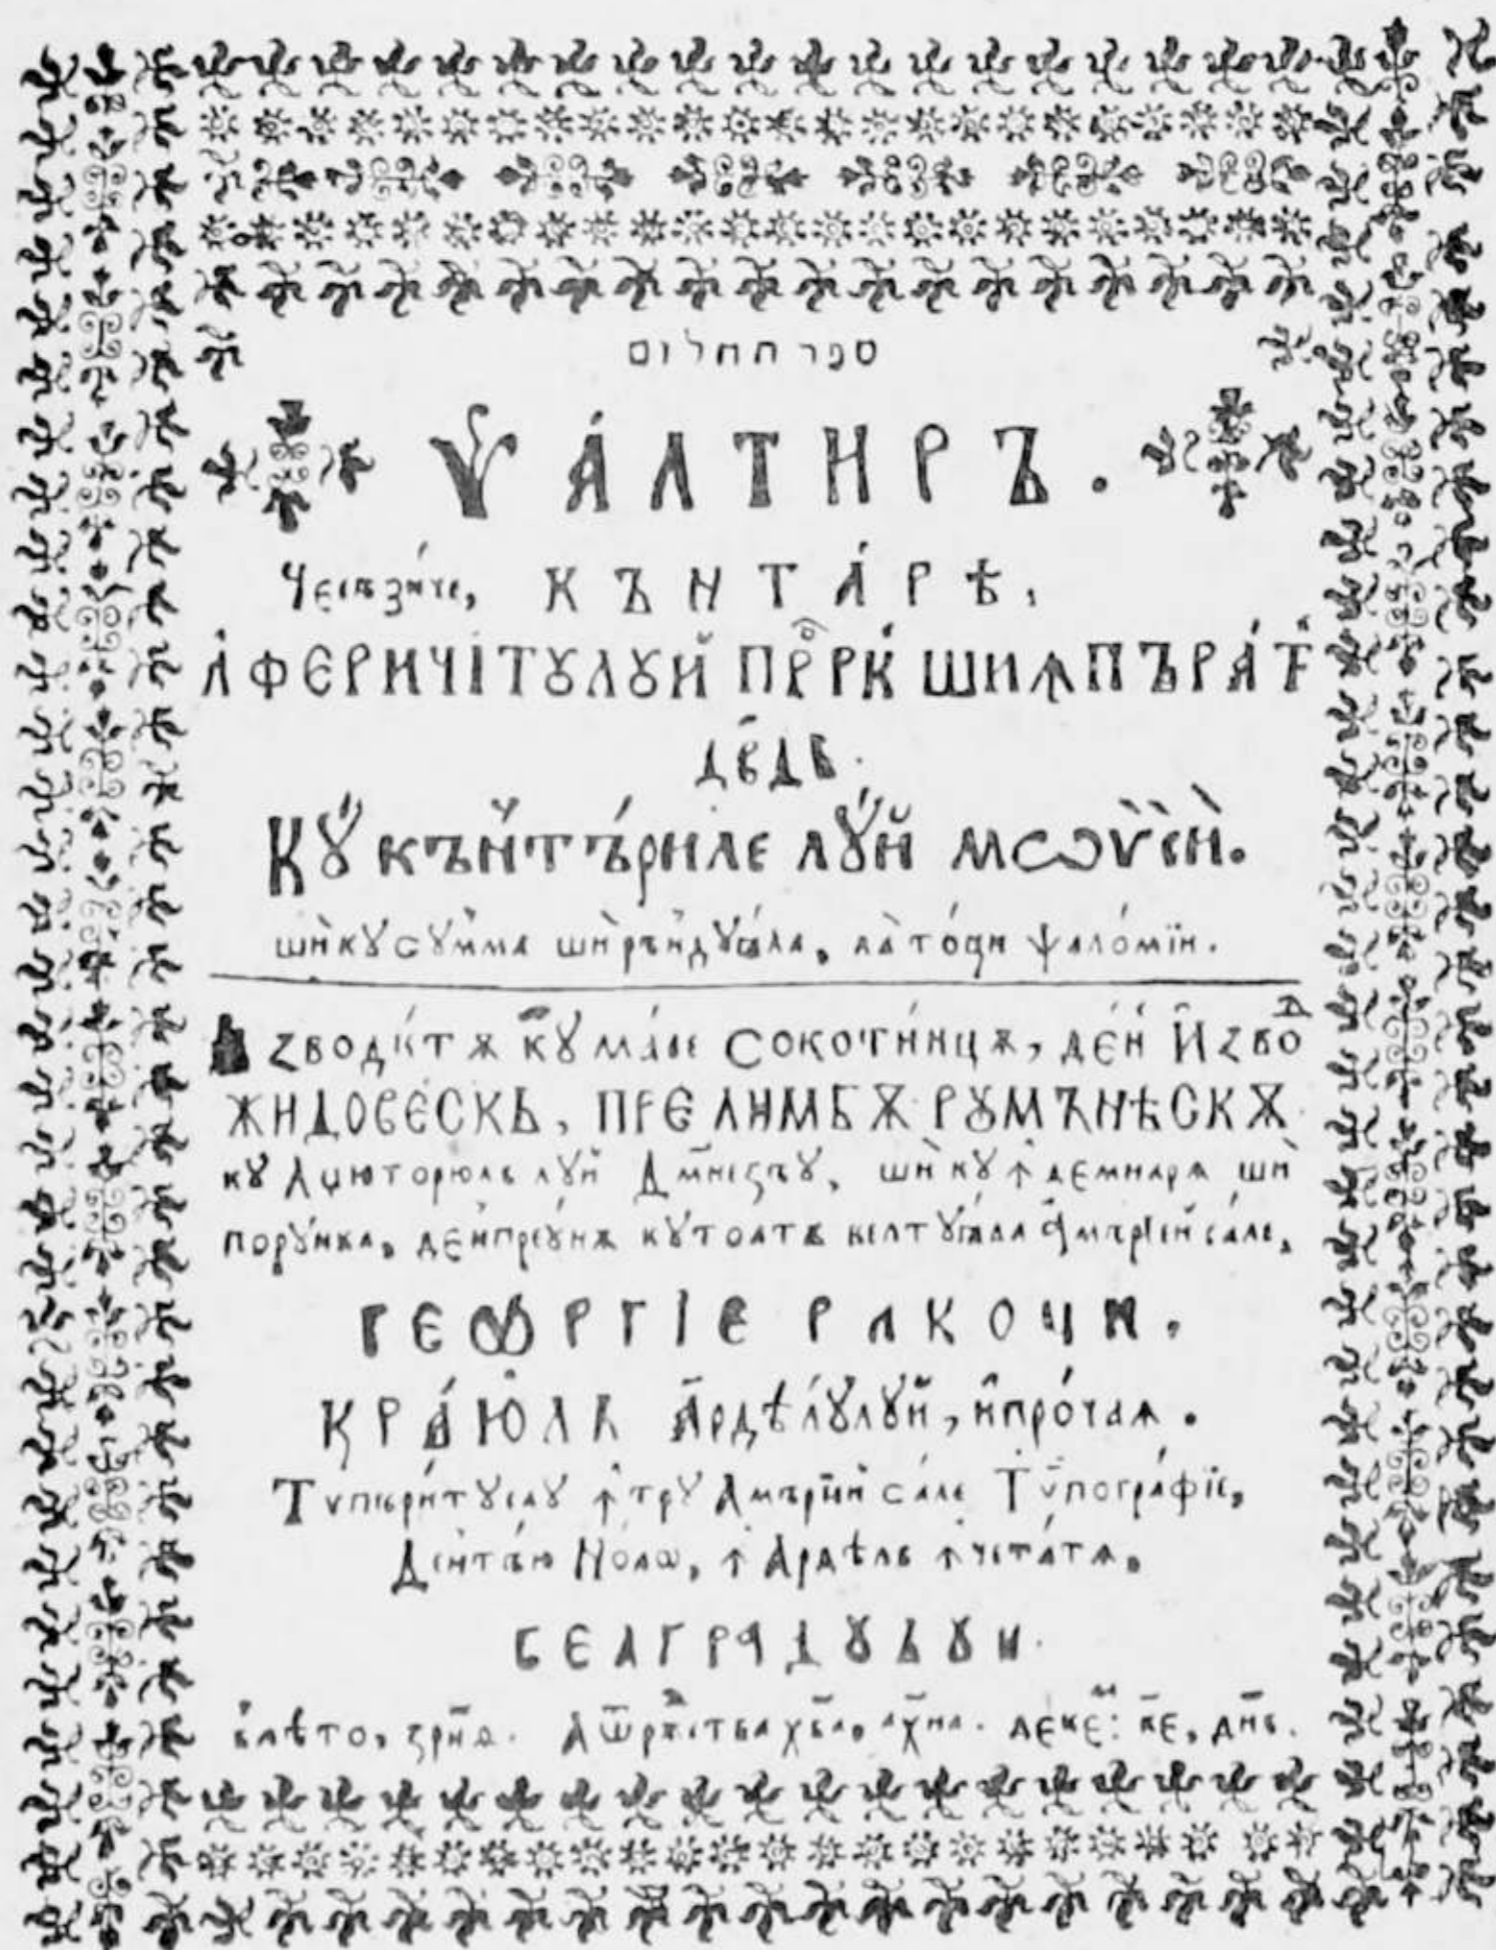 ספר תהלים
ѰА́ЛТИРЪ.
Че се зи́че, КЪНТА́РѢ,
А̀ ФЕРИЧІТȢЛȢЙ ПРⷪ҇РК ШИ ꙞПЪРА́Т
ДВ҃ДЬ.
Кꙋ кѫнтъ́риле лꙋ́й Мѡѷсі́й.
шѝ кꙋ сꙋ́мма шѝ рѫндꙋꙗ́ла, ла то́ци ѱало́мїи.
Izводи́тѫ кꙋ ма́ре Сокоти́нцѫ, де́н И҆zво́д
ЖИДОВЕ́СКЬ, ПРЕ ЛИМБѪ РꙊМѪНѢСКѪ
кꙋ Аџюторюль лꙋй Дм҃незъꙋ, шѝ кꙋ ꙟдемнарѧ шѝ
порꙋ́нка, денпреꙋ́нѫ кꙋ тоатѫ келтꙋꙗ́ла а҆ мъріей са́ле,
ГЕѠРГІЕ РАКОЧИ.
КРА́ЮЛЬ А҆рдѣ́лꙋлꙋй, и҆ про́чаѧ.
Тѷпъри́тꙋсаꙋ ꙟтрꙋ А мъріей са́ле Тѷпогра́фїе,
Дента́ю Но́аѡ, ꙟ Ардѣль ꙟ чета́тѧ.
БЕЛГРАДꙊЛꙊИ.
влѣто, зрн҃ѳ. А ѿ рж҃ства хв҃а, ахн҃а. деке҃м: ке҃, дн҃ь.